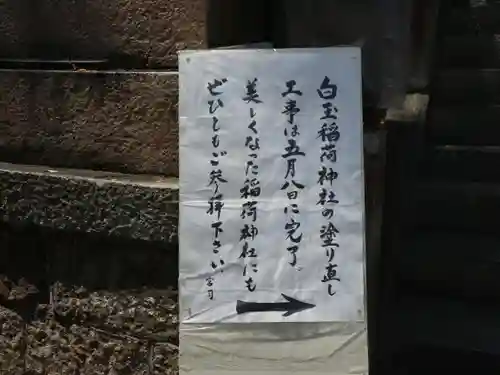 白玉稲荷神社の塗り直し
工事は五月八日に完了。
美しくなった稲荷神社にも
ぜひともご参拝下さい。